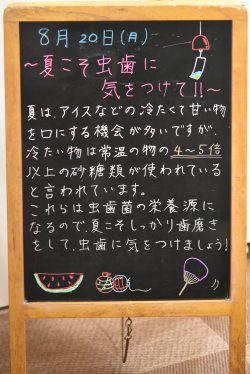 8月20日(月)
～夏こそ虫歯に
気をつけて!!～
夏は、アイスなどの冷たくて甘い物
を口にする機会が多いですが、
冷たい物は常温の物の4～5倍
以上の砂糖類が使われている
と言われています。
これらは虫歯菌の栄養源に
なるので、夏こそしっかり歯磨き
をして、虫歯に気をつけましょう!